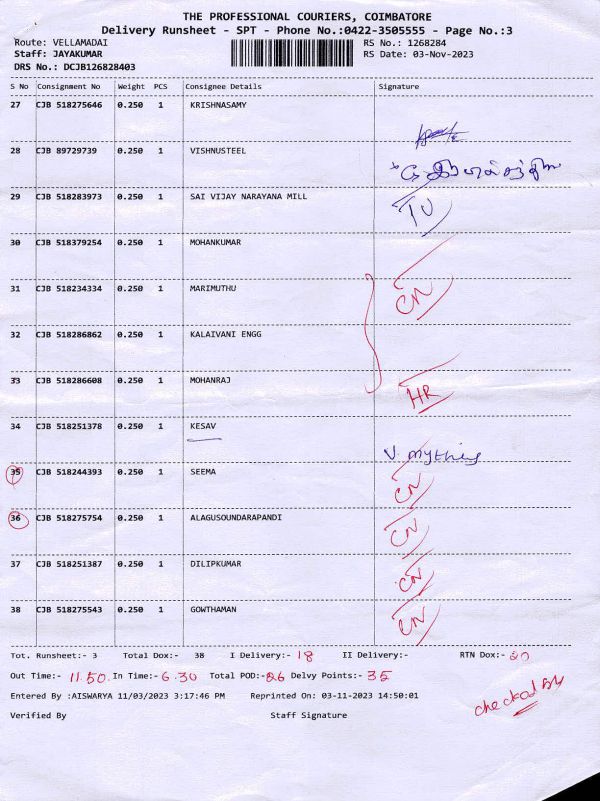 THE PROFESSIONAL COURIERS, COIMBATORE
Delivery Runsheet - SPT - Phone No.:0422-3505555 - Page No.:3
Route: VELLAMADAI RS No.: 1268284
Staff: JAYAKUMAR RS Date: 03-Nov-2023
DRS No.: DCJB126828403
S No Consignment No Weight PCS Consignee Details Signature
27 CJB 518275646 0.250 1 KRISHNASAMY
28 CJB 89729739 0.250 1 VISHNUSTEEL
29 CJB 518283973 0.250 1 SAI VIJAY NARAYANA MILL
30 CJB 518379254 0.250 1 MOHANKUMAR
31 CJB 518234334 0.250 1 MARIMUTHU CN
32 CJB 518286862 0.250 1 KALAIVANI ENGG
33 CJB 518286608 0.250 1 MOHANRAJ HR
34 CJB 518251378 0.250 1 KESAV
35 CJB 518244393 0.250 1 SEEMA CN
36 CJB 518275754 0.250 1 ALAGUSOUNDARAPANDI CN
37 CJB 518251387 0.250 1 DILIPKUMAR CN
38 CJB 518275543 0.250 1 GOWTHAMAN CN
Tot. Runsheet:- 3 Total Dox:- 38 I Delivery:- 18 II Delivery:- RTN Dox:- 20
Out Time:- 11.50. In Time:- 6.30 Total POD:- 26 Delvy Points:- 35
Entered By :AISWARYA 11/03/2023 3:17:46 PM Reprinted On: 03-11-2023 14:50:01
checked By
Verified By Staff Signature